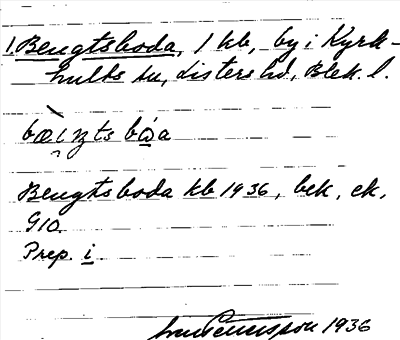 1. Bengtsboda, 1 kb, by i Kyrk-
hults sn, Listers hd, Blek. l.
Bengtsboda kb 1936, bek, ek,
G10.
Prep. i
1936